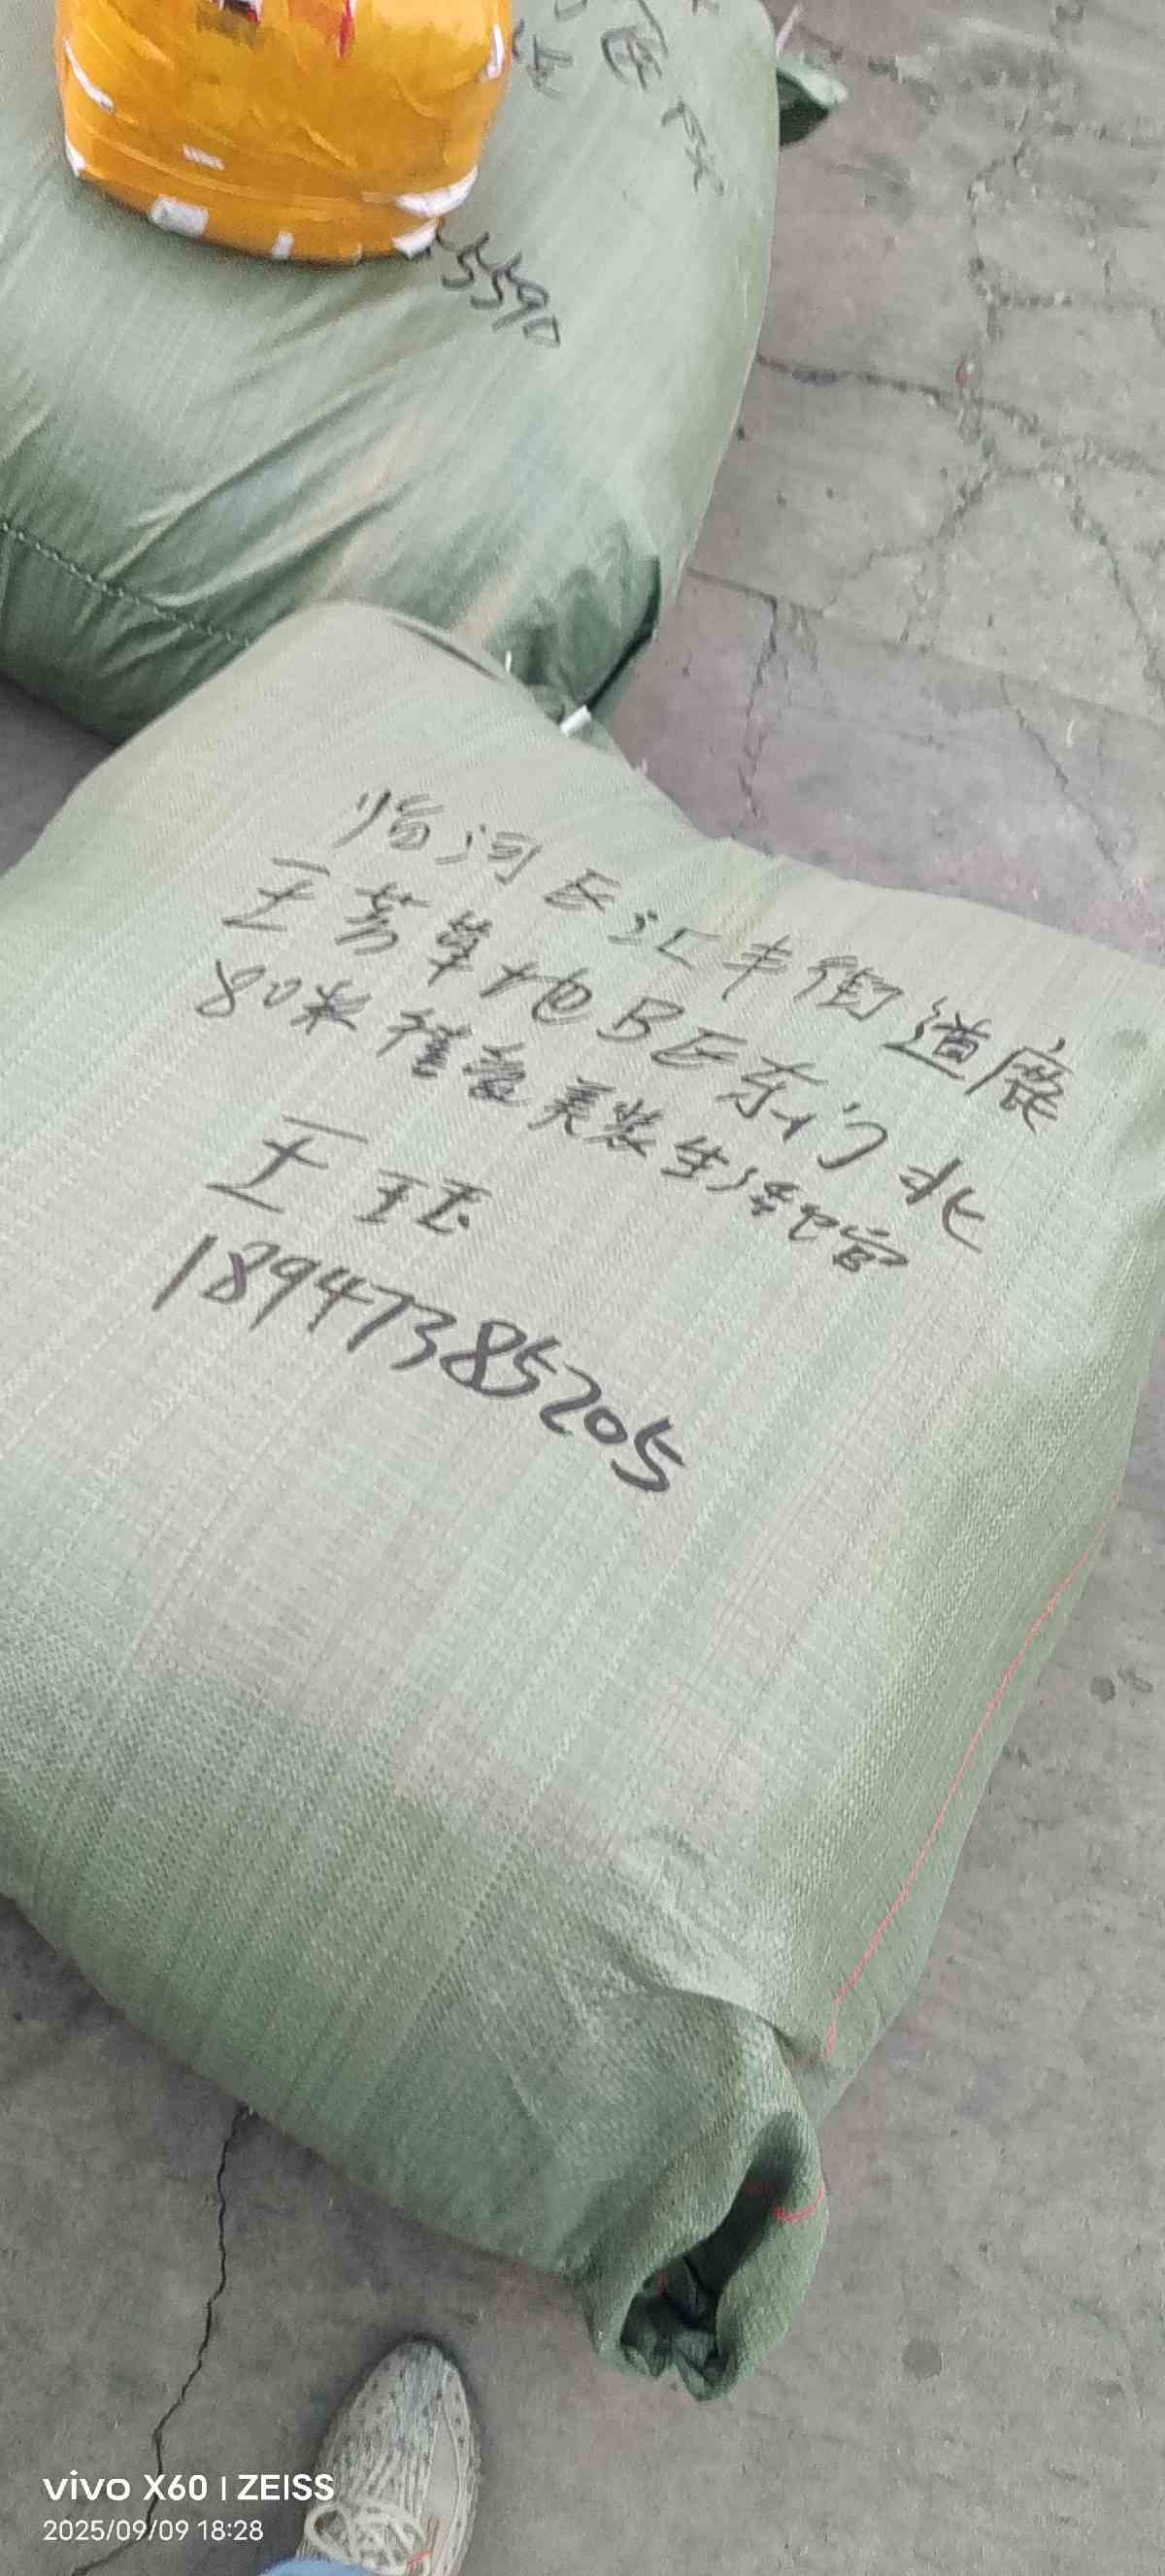 区
5590
临河区汇丰街道鹿
王芳草地B区东门北
80米禧爱美装生活馆
王珏
18947385205
vivo X60 | ZEISS
2025/09/09 18:28